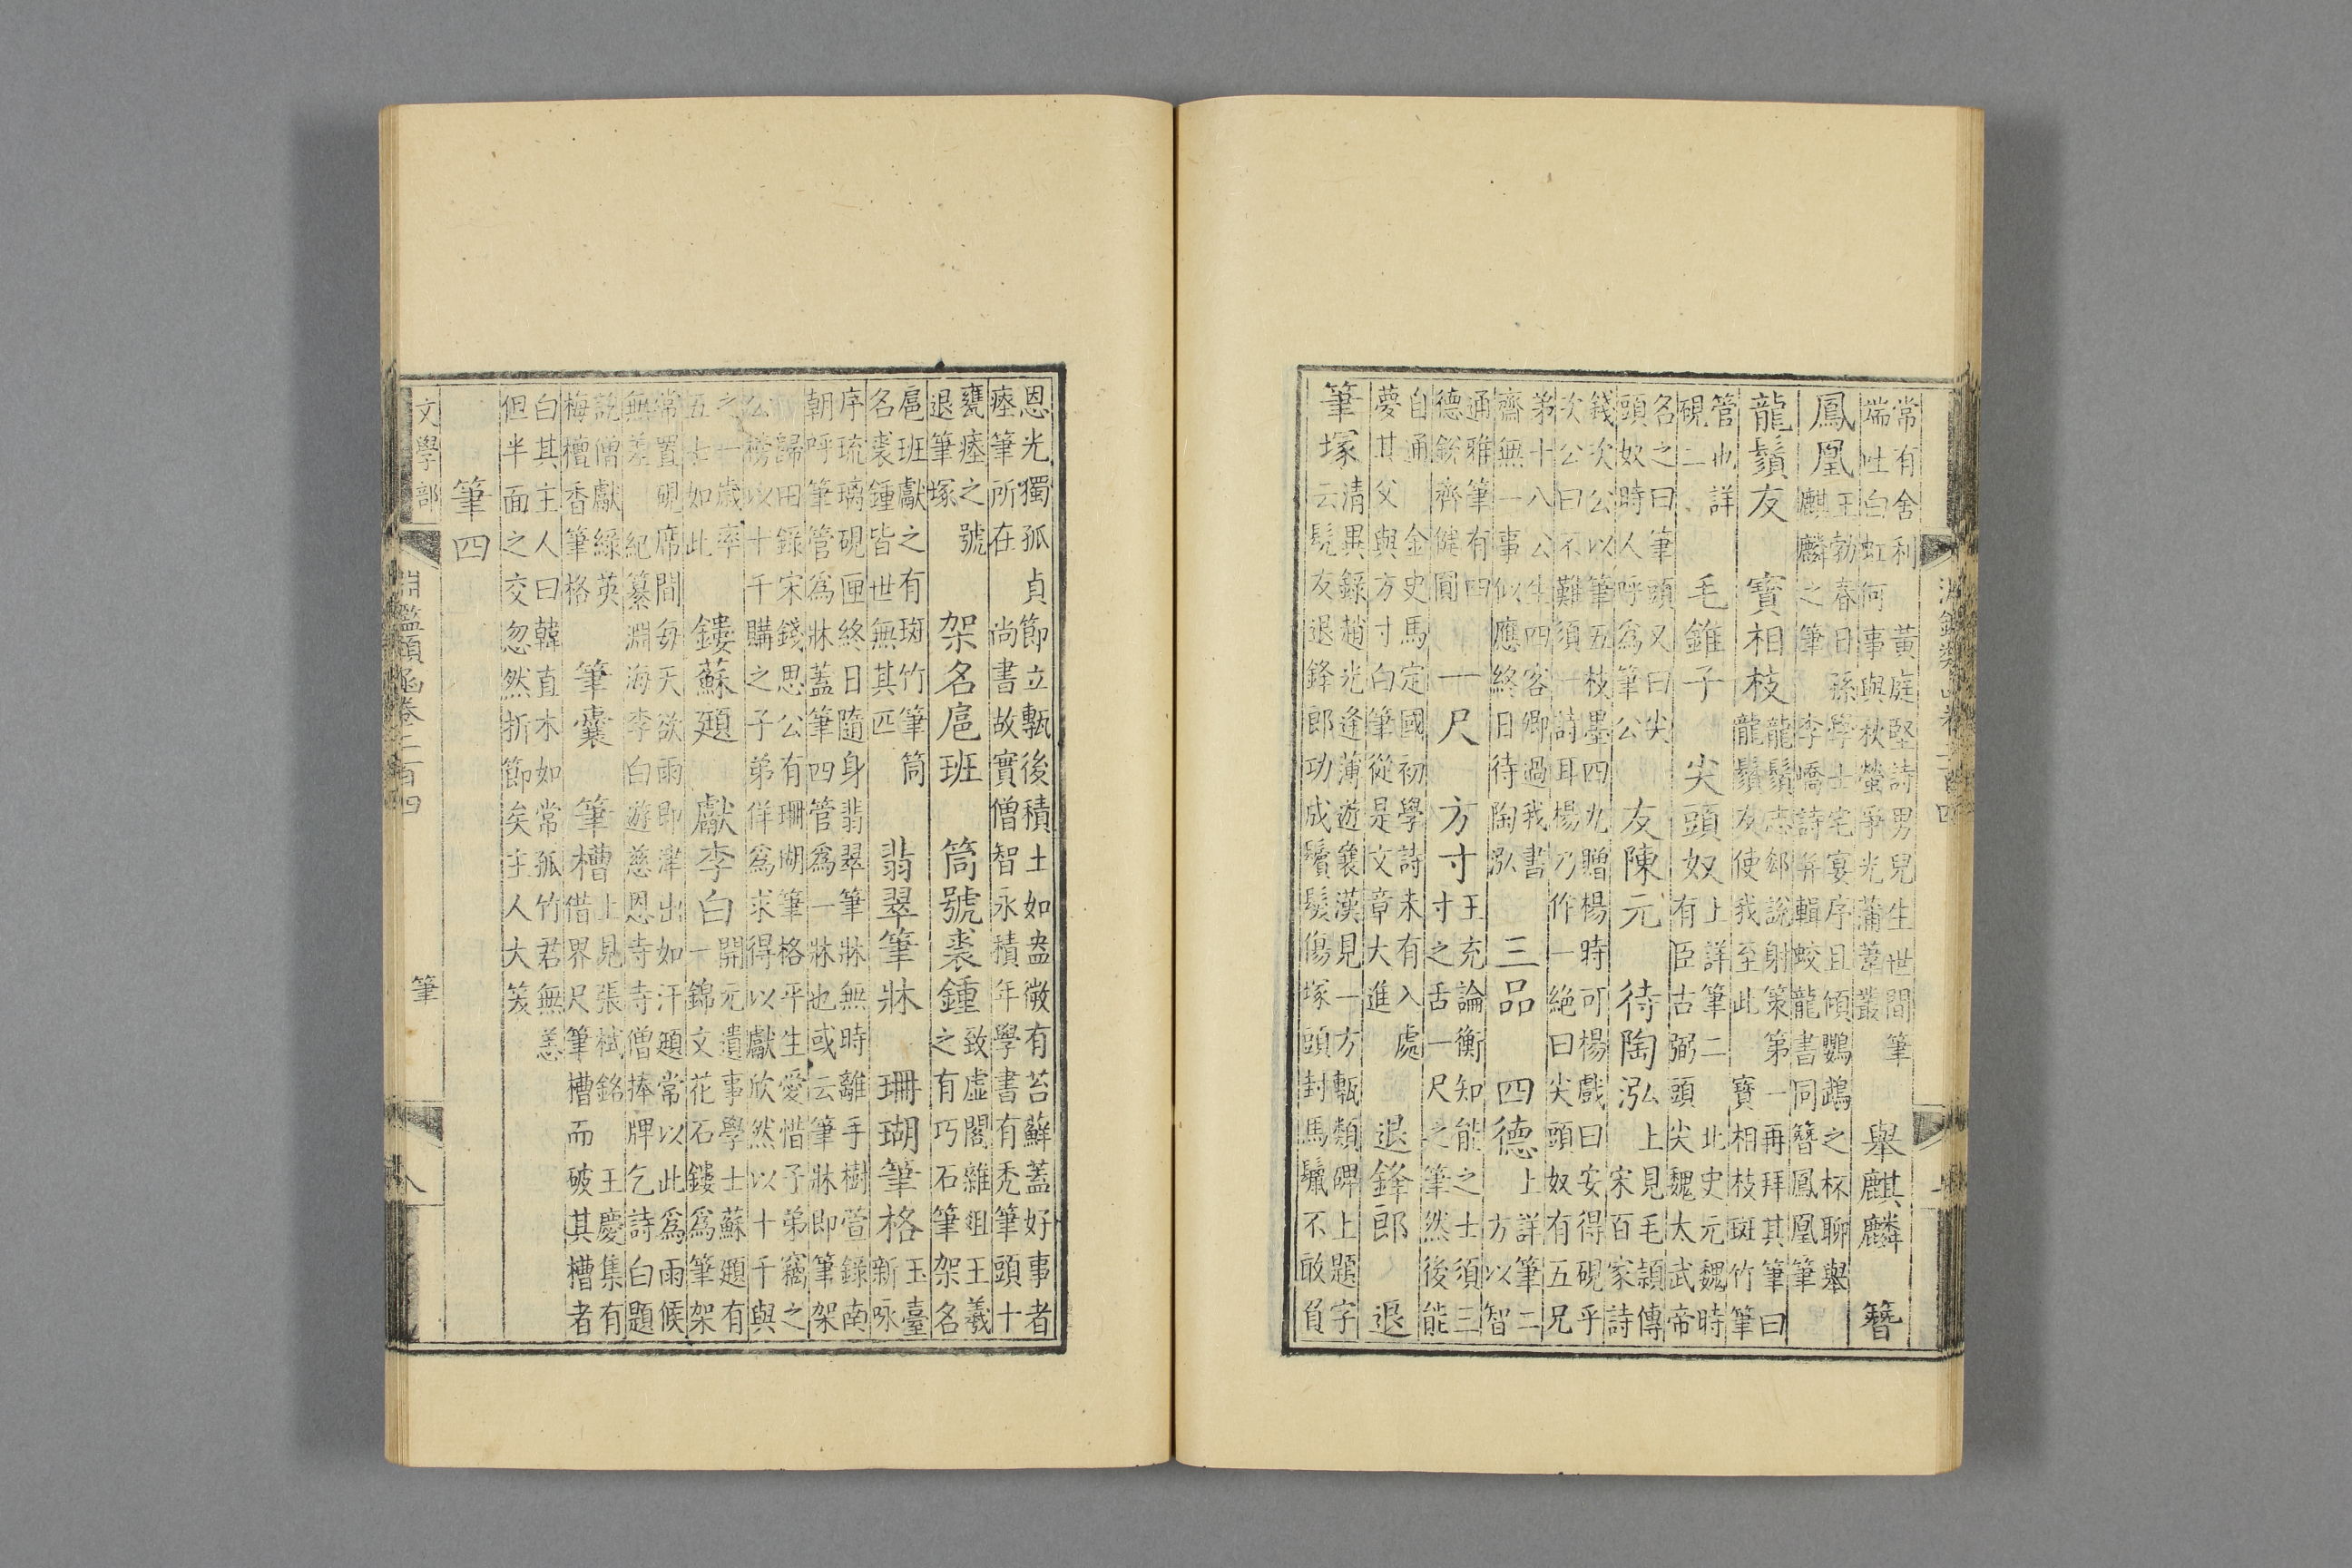 常有舍利
黃庭堅詩男兒生世間筆
端吐白虹何事與秋螢爭光蒲葦叢
舉麒麟
簪
鳳凰
王勃春日孫學士宅宴序且傾鸚鵡之杯聊舉
麒麟之筆
李嶠詩舞輯蛟龍書同簪鳳凰筆
龍鬚友
寶相枝
龍鬚志郄說射策第一再拜其筆曰
龍鬚友使我至此
寶相枝斑竹筆
管也詳
硯二
毛錐子
尖頭奴
上詳筆二
北史元魏時
有臣古弼頭尖魏太武帝
名之曰筆頭又曰尖
頭奴時人呼為筆公
友陳元
待陶泓
上見毛頴傳
宋百家詩
錢次公以筆五枝墨四丸贈楊時可楊戲曰安得硯乎
次公曰不難須一詩耳楊乃作一絕曰尖頭奴有五兄
弟十八公生四客卿過我書
齋無一事似應終日待陶泓
三品
四德
上詳筆二
方以智
通雅筆有四
德銳齊健圓
一尺
方寸
王充論衡知能之士須三
寸之舌一尺之筆然後能
自通
金史馬定國初學詩未有入處
夢其父與方寸白筆從是文章大進
退鋒郎
退
筆塚
清異錄趙光逢薄遊襄漢見一方甎類碑上題字
云髡友退鋒郎功成鬢髮傷塚頭封馬鬣不敢負
恩光獨孤貞節立甎後積土如盎微有苔蘚蓋好事者
瘞筆所在
尚書故實僧智永積年學書有禿筆頭十
甕瘞之號
退筆塚
架名扈班
筒號裘鍾
致虛閣雜俎王羲
之有巧石筆架名
扈班獻之有斑竹筆筒
名裘鍾皆世無其匹
翡翠筆牀
珊瑚筆格
玉臺
新咏
序琉璃硯匣終日隨身翡翠筆牀無時離手樹萱錄南
朝呼筆管為牀蓋筆四管為一牀也或云筆牀即筆架
歸田錄宋錢思公有珊瑚筆格平生愛惜子弟竊之
公榜以十千購之子弟佯為求得以獻欣然以十千與
之一歲率
五七如此
鏤蘇題
獻李白
開元遺事學士蘇題有
一錦文花石鏤為筆架
常置硯席間每天欲雨即津出如汗題常以此為雨候
無差
紀纂淵海李白遊慈恩寺寺僧捧牌乞詩白題
訖僧獻綠英
梅檀香筆格
筆囊
筆槽
上見張栻銘
王慶集有
借界尺筆槽而破其槽者
白其主人曰韓直木如常孤竹君無恙
但半面之交忽然折節矣主人大笑
筆四
文學部
淵鑑類函卷二百四
筆
八